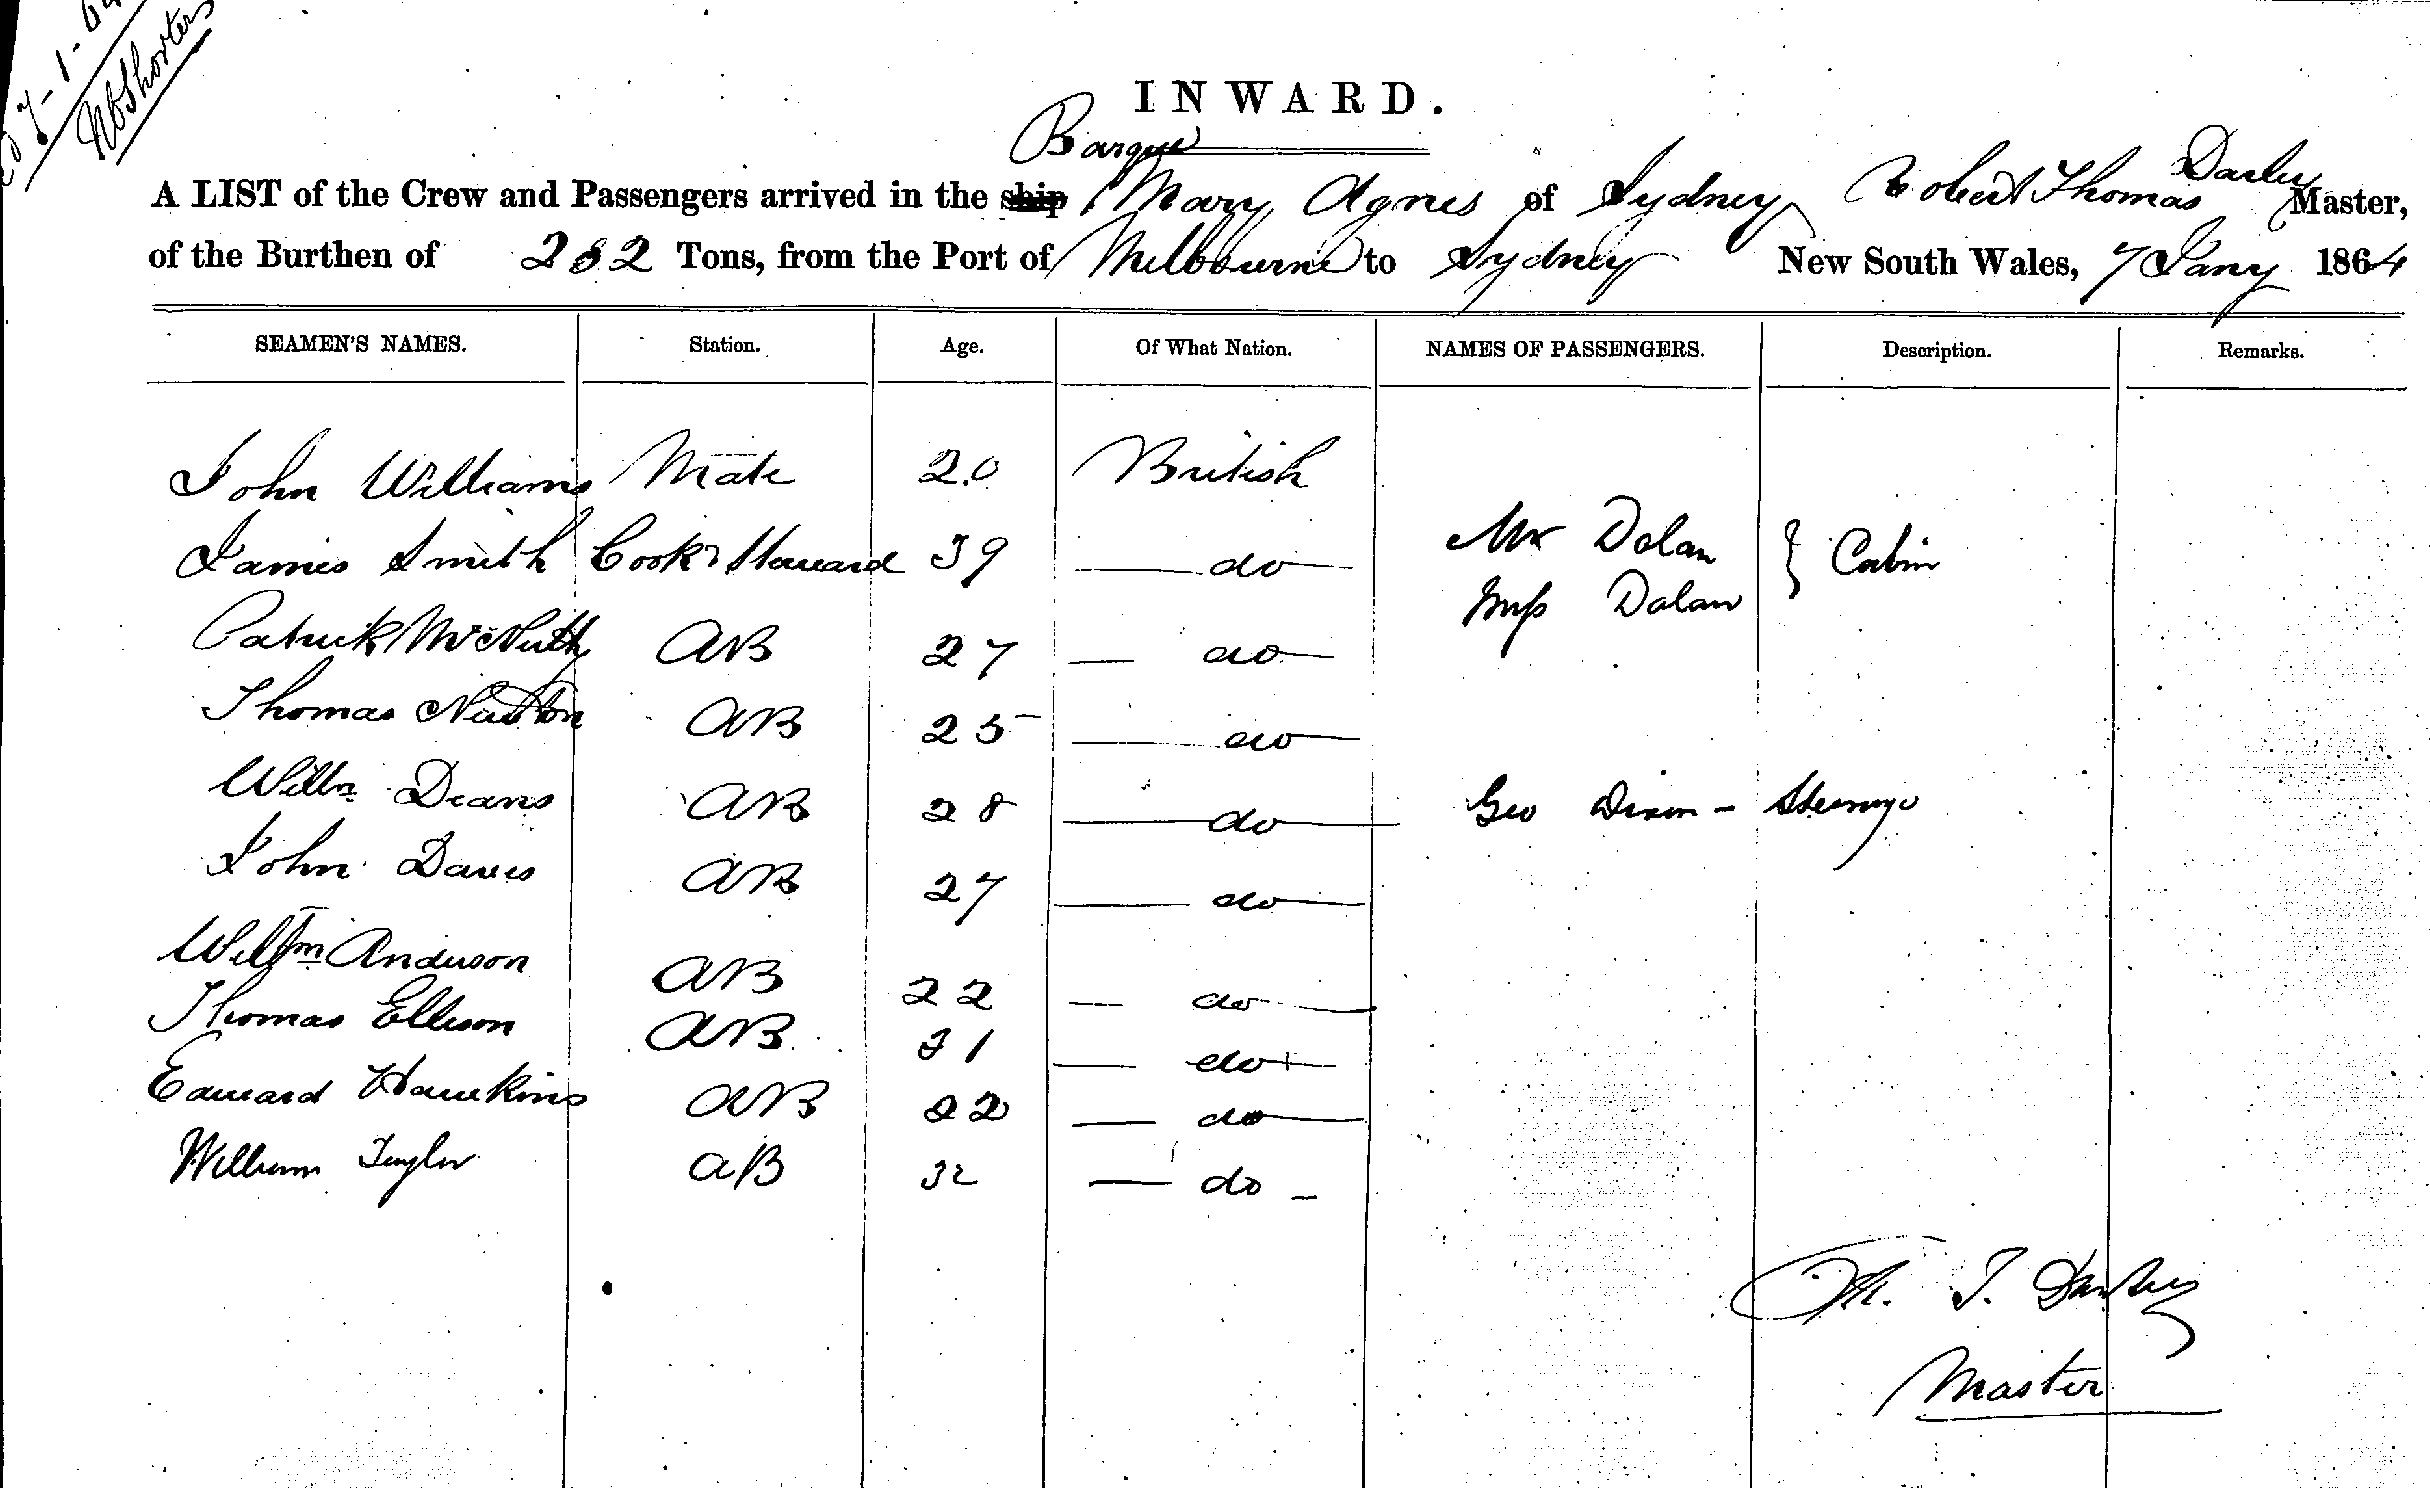 7-1-64
INWARD.
Barque
A LIST of the Crew and Passengers arrived in the ship Mary Agnes of Sydney Robert Thomas Darley Master,
of the Burthen of 282 Tons, from the Port of Melbourne to Sydney New South Wales, 7 Jany 1864
SEAMEN'S NAMES. Station. Age. Of What Nation. NAMES OF PASSENGERS. Description. Remarks.
John Williams Mate 20 British
James Smith Cook & Steward 39 — do — Mr Dolan } Cabin
Miss Dolan
Patrick McNulty AB 27 — do —
Thomas Newton AB 25 — do —
Willm Deans AB 28 — do — Geo Dixon - Steerage
John Davis AB 27 — do —
Willm Anderson AB 22 — do —
Thomas Ellison AB 31 — do —
Edward Hawkins AB 22 — do —
William Taylor AB 32 — do —
R. T. Darley
Master